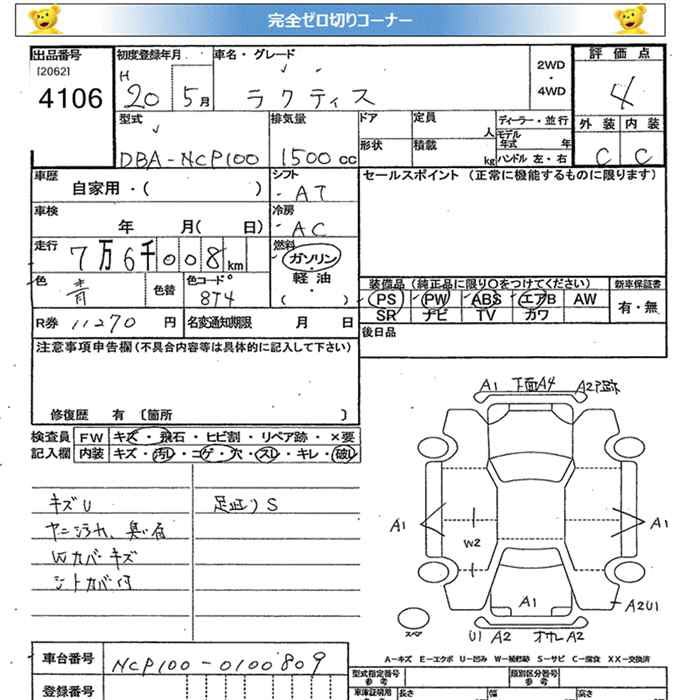 完全ゼロ切りコーナー
出品番号 初度登録年月 車名・グレード 2WD・4WD 評価点
[2062] H
4106 20 5月 ラクティス 4
外装 内装
C C
型式 排気量 ドア 定員 人 ディーラー・並行
モデル年式 年
DBA-NCP100 1500cc 形状 積載 kg ハンドル 左・右
車歴 シフト セールスポイント (正常に機能するものに限ります)
自家用・( ) AT
車検 冷房
年 月( 日) AC
走行 燃料
7万6千008km ガソリン・軽油・( )
色 色替 色コード 装備品 (純正品に限り○をつけてください) 新車保証書
青 8T4 PS PW ABS エアB AW 有・無
SR ナビ TV カワ
R券 11270円 名変通知期限 月 日 後日品
注意事項申告欄 (不具合内容等は具体的に記入して下さい)
修復歴 有 [箇所 ]
検査員 FW キズ・飛石・ヒビ割・リペア跡・×要
記入欄 内装 キズ・汚レ・コゲ・穴・スレ・キレ・破レ
キズU 足廻りS
Wカバーキズ
シートカバー付
A1 下面A4 A2
A1 A1
W2
A1 A2U1
スペア U1 A2 A2
A-キズ E-エクボ U-凹み W-補修跡 S-サビ C-腐食 XX-交換済
車台番号 NCP100-0100809
型式指定番号 参考 類別区分番号 参考
登録番号 車庫証明用 参考 長さ 幅 高さ